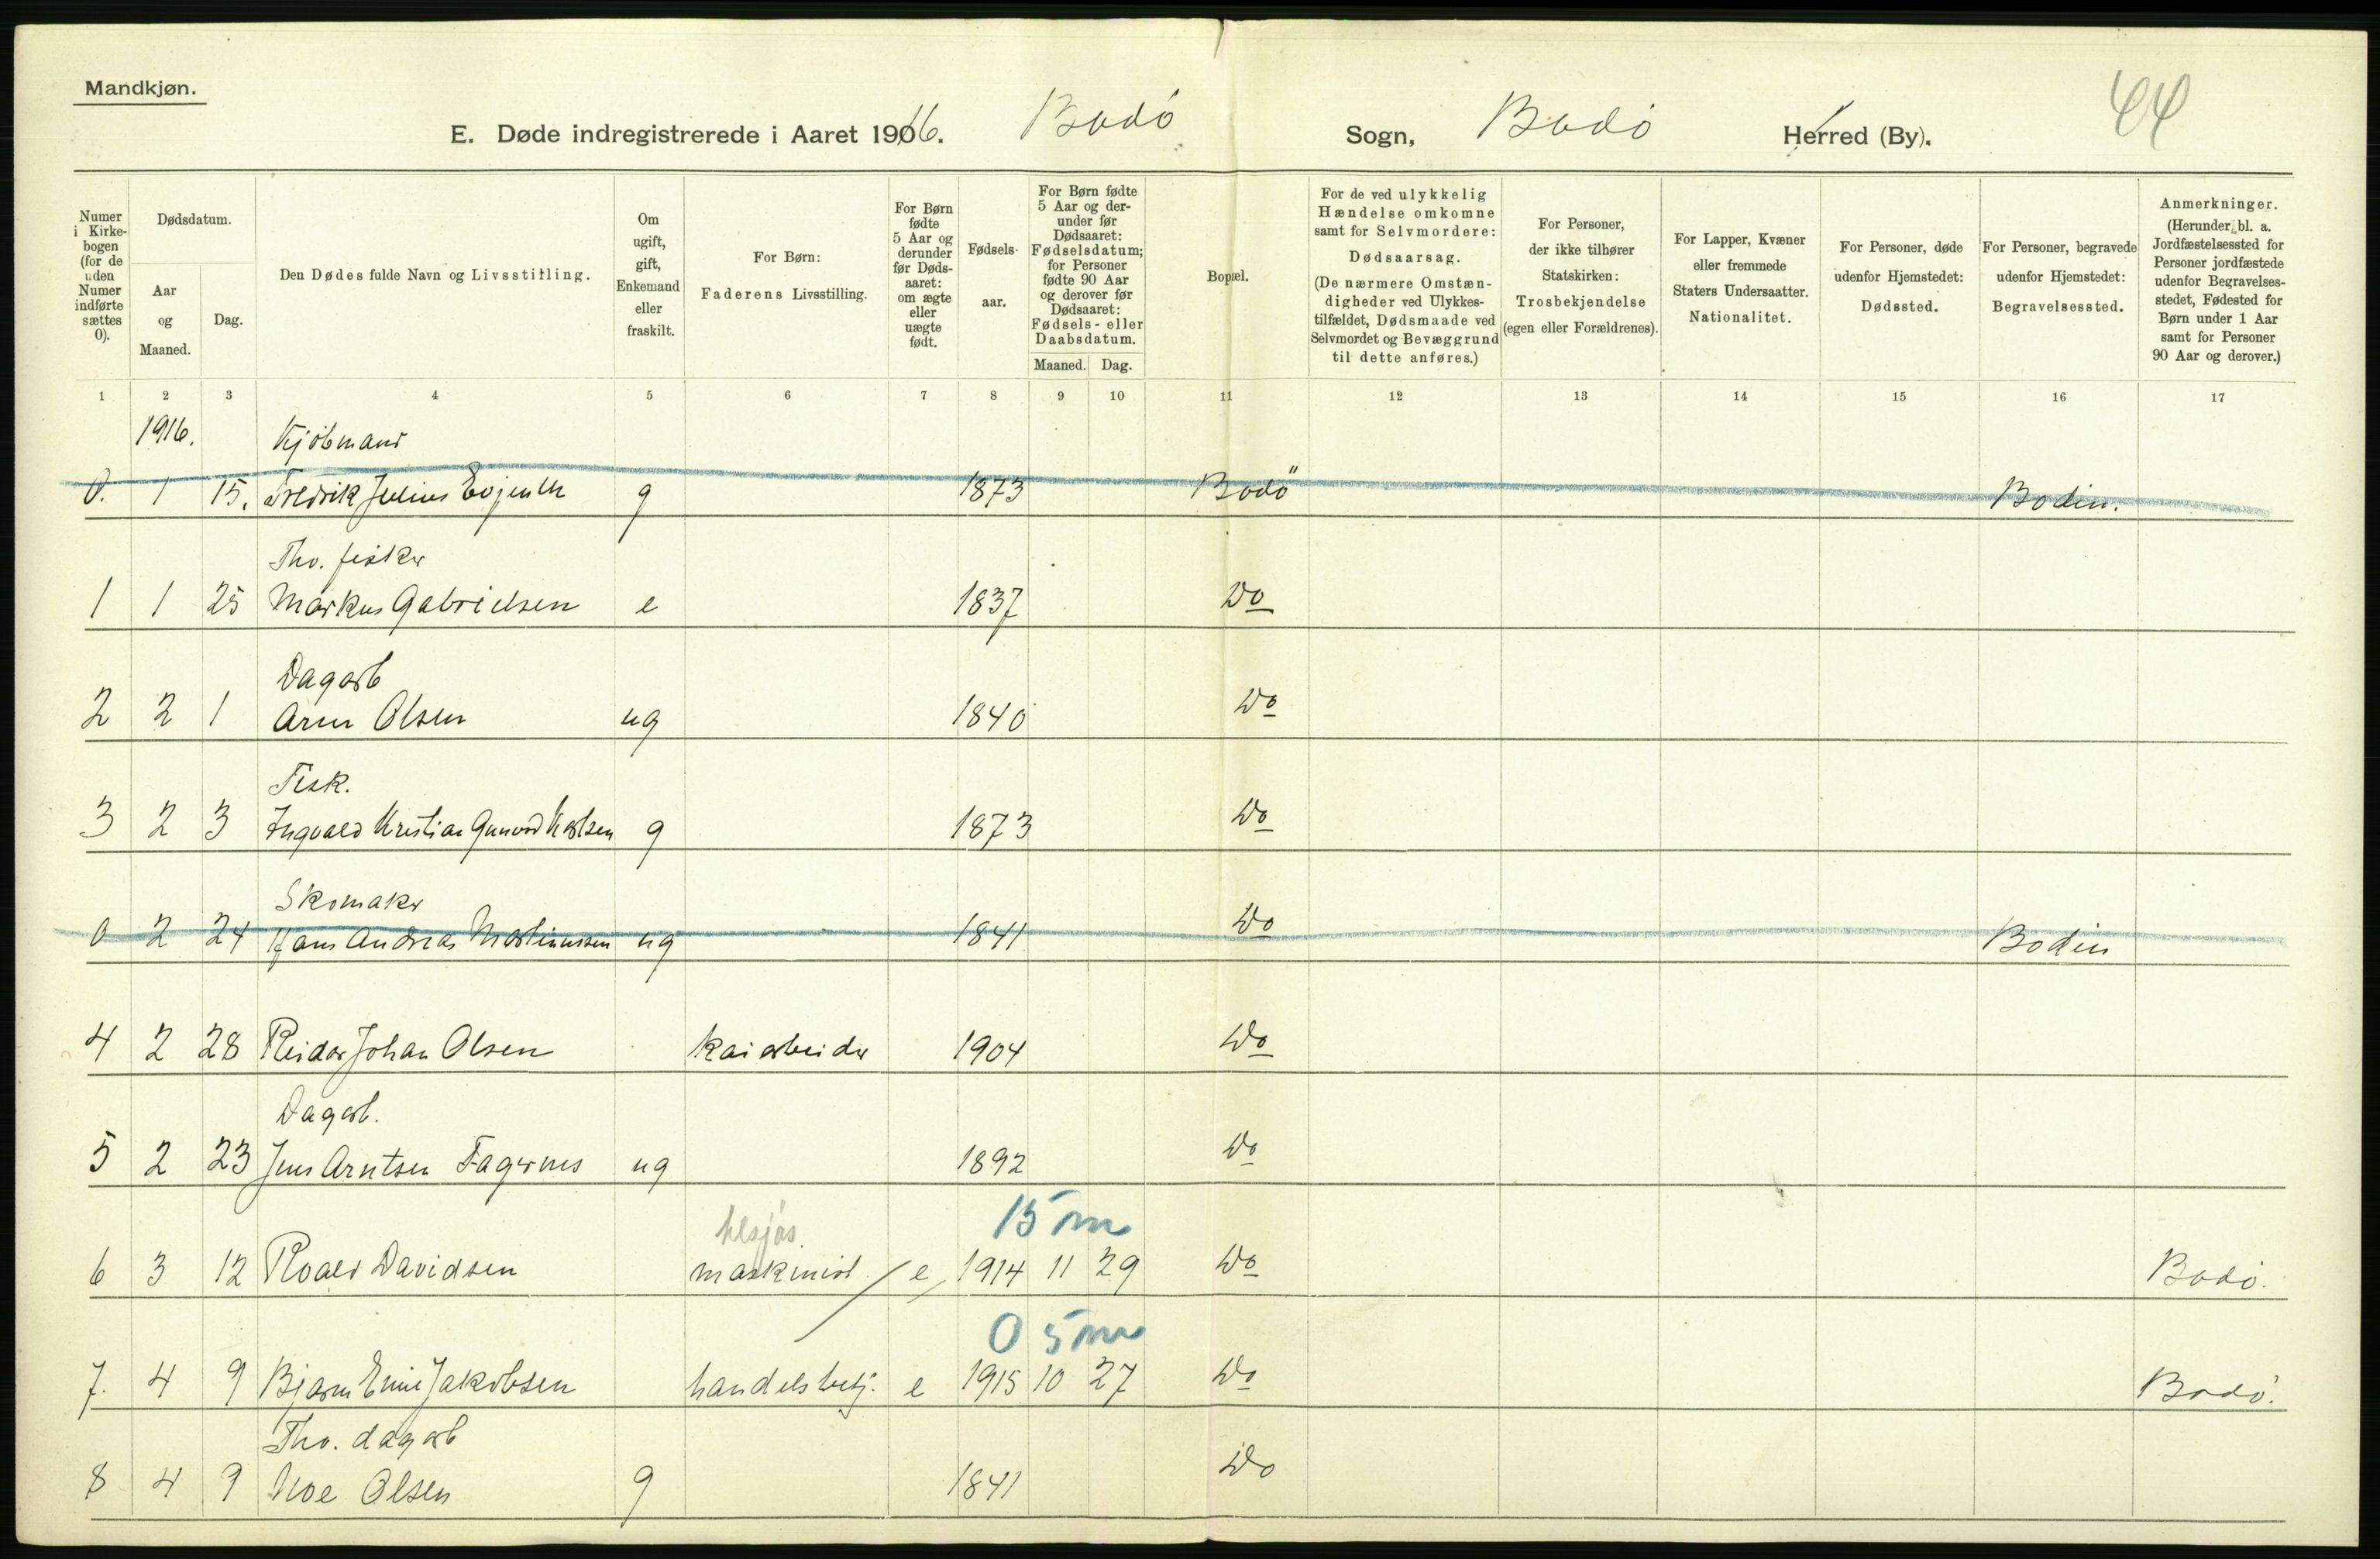 Mandkjøn.
44
E. Døde indregistrerede i Aaret 1916. Bodø Sogn, Bodø Herred (By).
Numer i Kirkebogen (for de uden Numer indførte sættes 0).
Dødsdatum.
Aar og Maaned.
Dag.
Den Dødes fulde Navn og Livsstilling.
Om ugift, gift, Enkemand eller fraskilt.
For Børn: Faderens Livsstilling.
For Børn fødte 5 Aar og derunder før Dødsaaret: om ægte eller uægte født.
Fødselsaar.
For Børn fødte 5 Aar og derunder før Dødsaaret: Fødselsdatum; for Personer fødte 90 Aar og derover før Dødsaaret: Fødsels- eller Daabsdatum.
Maaned. Dag.
Bopæl.
For de ved ulykkelig Hændelse omkomne samt for Selvmordere: Dødsaarsag. (De nærmere Omstændigheder ved Ulykkestilfældet, Dødsmaade ved Selvmordet og Bevæggrund til dette anføres.)
For Personer, der ikke tilhører Statskirken: Trosbekjendelse (egen eller Forældrenes).
For Lapper, Kvæner eller fremmede Staters Undersaatter. Nationalitet.
For Personer, døde udenfor Hjemstedet: Dødssted.
For Personer, begravede udenfor Hjemstedet: Begravelsessted.
Anmerkninger. (Herunder bl. a. Jordfæstelsessted for Personer jordfæstede udenfor Begravelsesstedet, Fødested for Børn under 1 Aar samt for Personer 90 Aar og derover.)
1 2 3 4 5 6 7 8 9 10 11 12 13 14 15 16 17
1916. Kjöbmand
0. 1 15. Fredrik Julius Evjenth g 1873 Bodö Bodin.
Fhv. fisker
1 1 25 Markus Gabrielsen e 1837 Do
Dagarb
2 2 1 Arne Olsen ug 1840 Do
Fisk.
3 2 3 Ingvald Kristian Karlsen g 1873 Do
Skomaker
0 2 24 Hans Andreas Martinussen ug 1841 Do Bodin
4 2 28 Reidar Johan Olsen kaiarbeider 1904 Do
Dagarb.
5 2 23 Jens Arntsen Fagernes ug 1892 Do
15 m
6 3 12 Roald Davidsen maskinist e 1914 11 29 Do Bodø.
0 5 m
7. 4 9 Bjarne Jakobsen handelsbetj. e 1915 10 27 Do Bodø.
Fhv. dagarb
8 4 9 Noe Olsen g 1841 Do